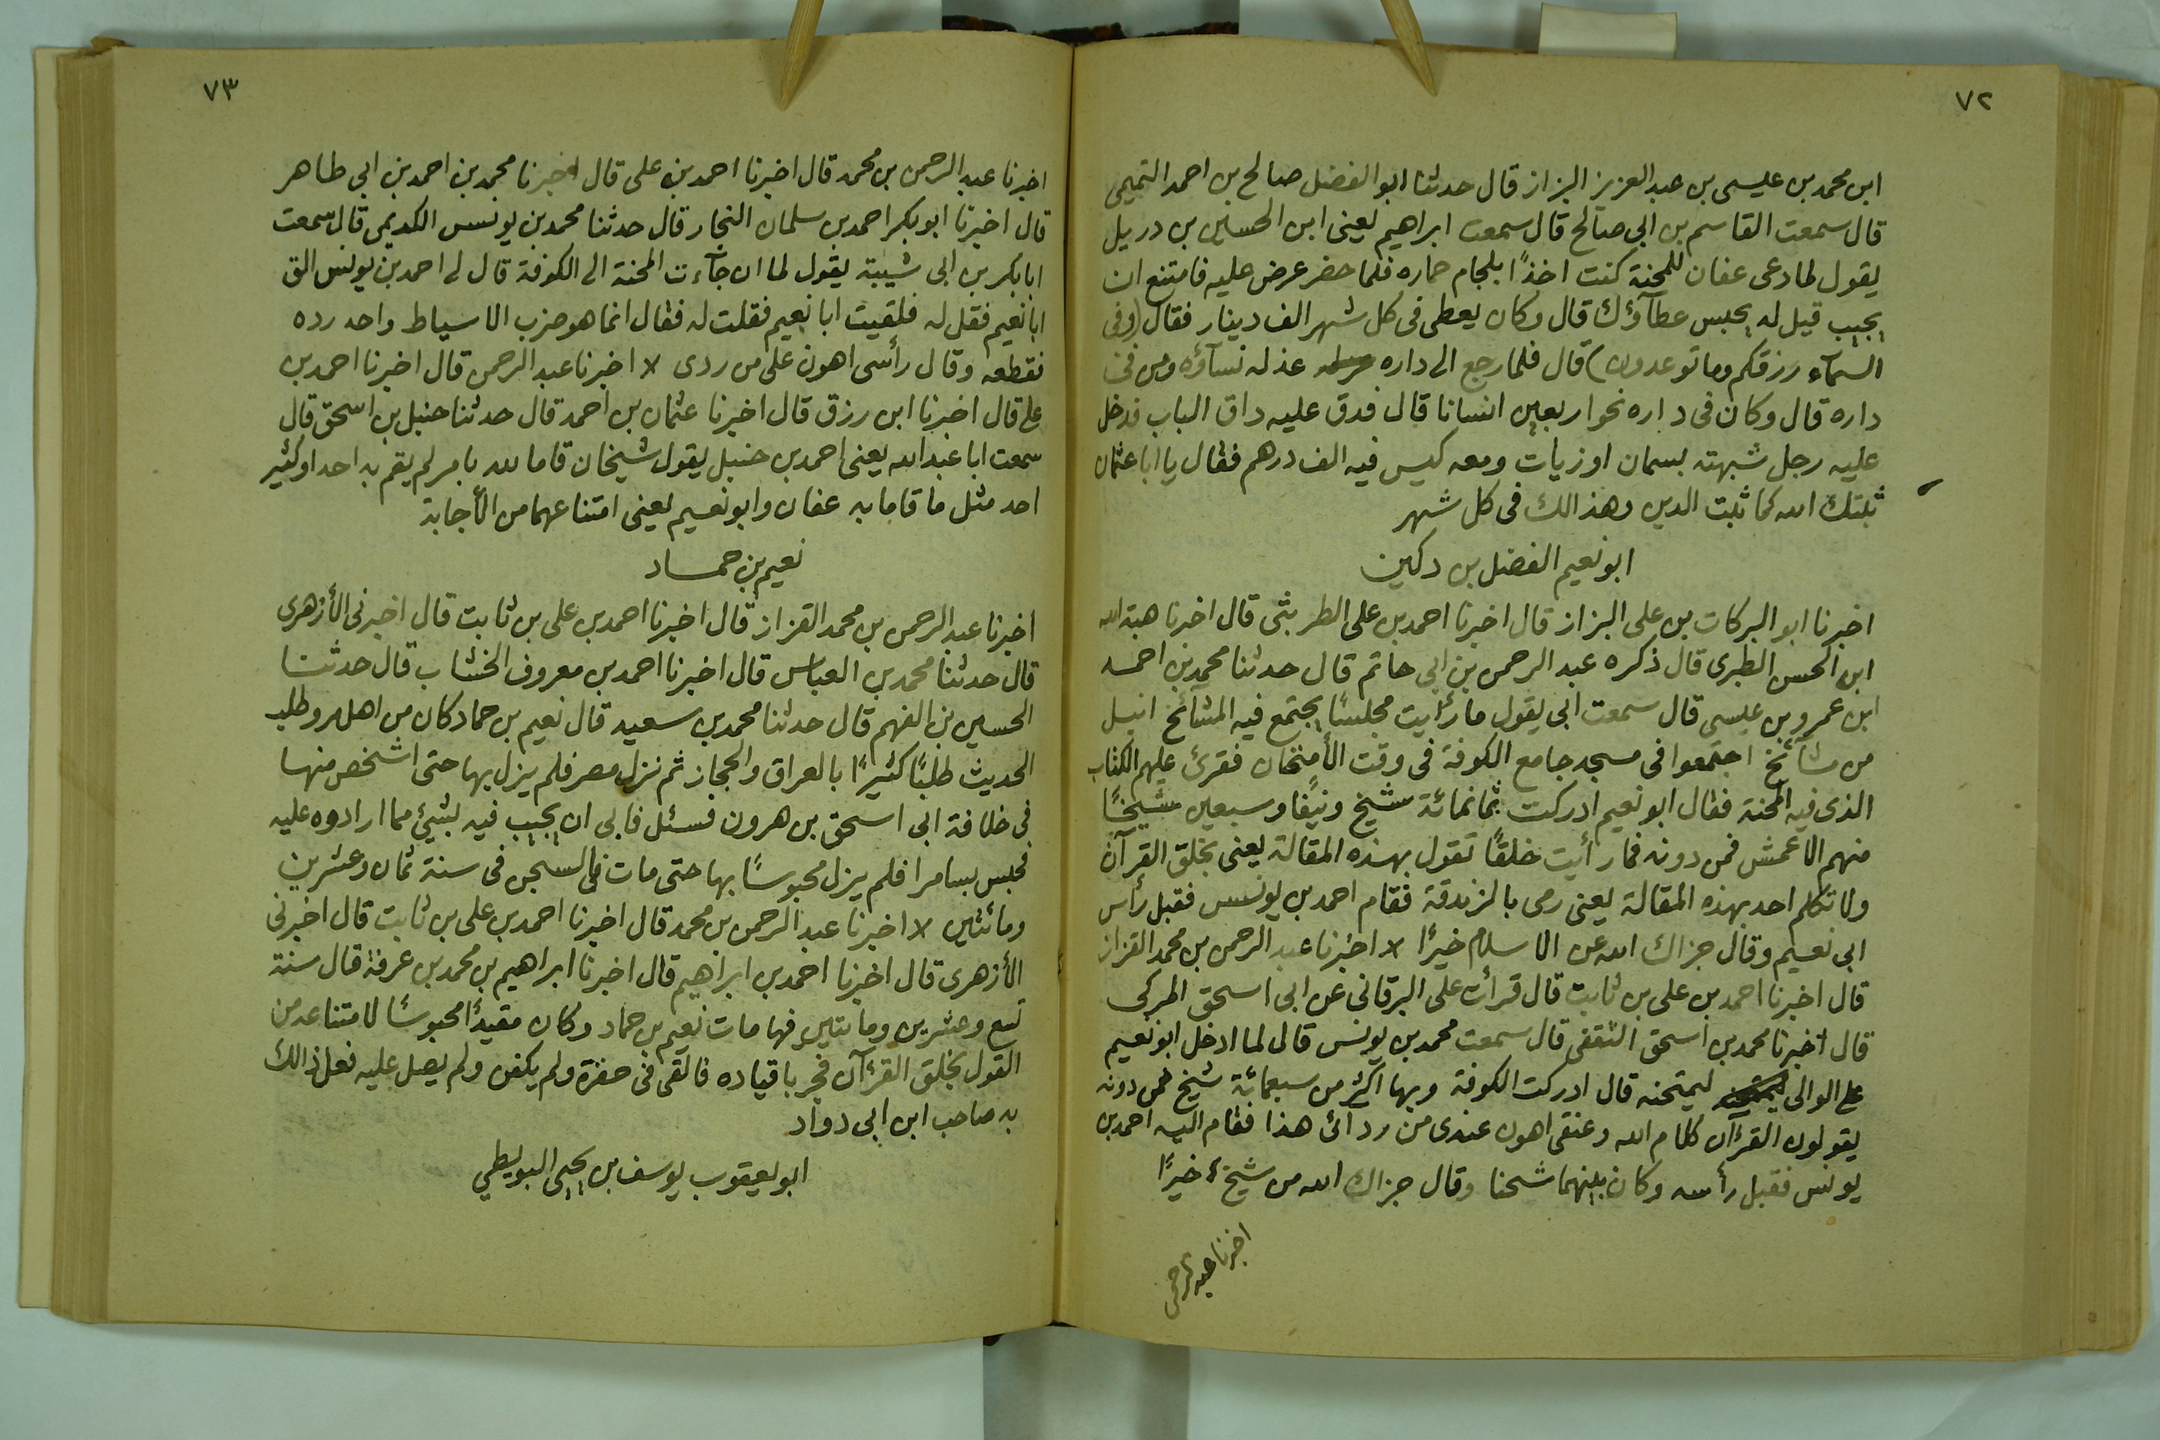 ٧٢
ابن محمد بن عيسى بن عبد العزيز البزاز قال حدثنا ابو الفضل صالح بن احمد التميمى
قال سمعت القاسم بن ابى صالح قال سمعت ابراهيم يعنى ابن الحسين بن دزيل
يقول لما دعى عفان للمحنة كنت اخذًا بلجام حماره فلما حضر عرض عليه فامتنع ان
يجيب قيل له يحبس عطآؤك قال وكان يعطى فى كل شهر الف دينار فقال (وفى
السمآء رزقكم وما توعدون) قال فلما رجع الى داره عذله نسآؤه ومن فى
داره قال وكان فى داره نحو اربعين انسانا قال فدق عليه داق الباب فدخل
عليه رجل شبهته بسمان او زيات ومعه كيس فيه الف درهم فقال يا ابا عثمان
ثبتك الله كما ثبت الدين وهذا لك فى كل شهر
ابو نعيم الفضل بن دكين
اخبرنا ابو البركات بن على البزاز قال اخبرنا احمد بن على الطريثثى قال اخبرنا هبة الله
ابن الحسن الطبرى قال ذكره عبد الرحمن بن ابى حاتم قال حدثنا محمد بن احمد
ابن عمرو بن عيسى قال سمعت ابى يقول ما رأيت مجلسًا يجتمع فيه المشآئخ انبل
من مشآئخ اجتمعوا فى مسجد جامع الكوفة فى وقت الأمتحان فقرئ عليهم الكتاب
الذى فيه المحنة فقال ابو نعيم ادركت ثمانمائة شيخ ونيفًا وسبعين شيخًا
منهم الاعمش فمن دونه فما رأيت خلقًا تقول بهذه المقالة يعنى بخلق القرآن
ولا تكلم احد بهذه المقالة يعنى رمى بالزندقة فقام احمد بن يونس فقبل رأس
ابى نعيم وقال جزاك الله عن الاسلام خيرًا لا اخبرنا عبد الرحمن بن محمد القزاز
قال اخبرنا احمد بن على بن ثابت قال قرأت على البرقانى عن ابى اسحق المزكى
قال اخبرنا محمد بن اسحق الثقفى قال سمعت محمد بن يونس قال لما ادخل ابو نعيم
على الوالى ليمتحنه قال ادركت الكوفة وبها اكثر من سبعمائة شيخ فمن دونه
يقولون القرءآن كلام الله وعنقى اهون عندى من ردائى هذا فقام اليه احمد بن
يونس فقبل رأسه وكان بينهما شحنا وقال جزاك الله من شيخٍ خيرًا
اخبرنا عبد الرحمن
٧٣
اخبرنا عبد الرحمن بن محمد قال اخبرنا احمد بن على قال اخبرنا محمد بن احمد بن ابى طاهر
قال اخبرنا ابو بكر احمد بن سلمان النجار قال حدثنا محمد بن يونس الكديمى قال سمعت
ابا بكر بن ابى شيبة يقول لما ان جآءت المحنة الى الكوفة قال لى احمد بن يونس الق
ابا نعيم فقل له فلقيت ابا نعيم فقلت له فقال انما هو ضرب الاسياط واحد رده
فقطعه وقال رأسى اهون على من ردى لا اخبرنا عبد الرحمن قال اخبرنا احمد بن
على قال اخبرنا ابن رزق قال اخبرنا عثمان بن احمد قال حدثنا حنبل بن اسحق قال
سمعت ابا عبد الله يعنى احمد بن حنبل يقول شيخان قاما لله بامر لم يقم به احد او كثير
احد مثل ما قاما به عفان وابو نعيم يعنى امتناعهما من الأجابة
نعيم بن حماد
اخبرنا عبد الرحمن بن محمد القزاز قال اخبرنا احمد بن على بن ثابت قال اخبرنى الأزهرى
قال حدثنا محمد بن العباس قال اخبرنا احمد بن معروف الخشاب قال حدثنا
الحسين بن الفهم قال حدثنا محمد بن سعيد قال نعيم بن حماد كان من اهل مرو طلب
الحديث طلبًا كثيرًا بالعراق والحجاز ثم نزل مصر فلم يزل بها حتى اشخص منها
فى خلافة ابى اسحق بن هرون فسئل فابى ان يجيب فيه بشيئ مما ارادوه عليه
فحبس بسامرا فلم يزل محبوسًا بها حتى مات فى السجن فى سنة ثمان وعشرين
ومائتين لا اخبرنا عبد الرحمن بن محمد قال اخبرنا احمد بن على بن ثابت قال اخبرنى
الأزهرى قال اخبرنا احمد بن ابراهيم قال اخبرنا ابراهيم بن محمد بن عرفة قال سنة
تسع وعشرين ومائتين فيها مات نعيم بن حماد وكان مقيدًا محبوسًا لامتناعه من
القول بخلق القرءآن فجر باقياده فالقى فى حفرة ولم يكفن ولم يصل عليه فعل ذالك
به صاحب ابن ابى دواد
ابو يعقوب يوسف بن يحيى البويطي